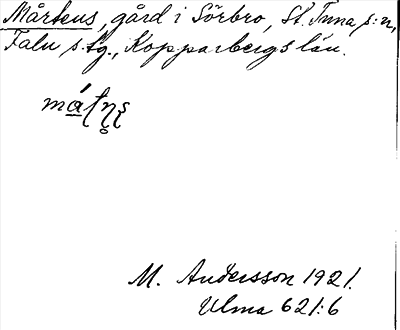 Mårtens, gård i Sörbro, St. Tuna s:n,
Falu s:tg., Kopparbergs län.
M. Andersson 1921.
Ulma 621:6